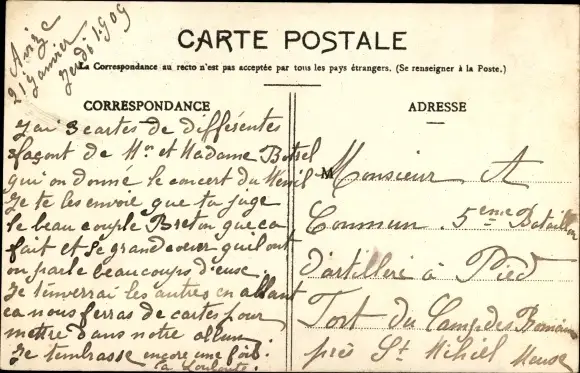 Avize
21 janvier
Jeudi 1909
CARTE POSTALE
La Correspondance au recto n'est pas acceptée par tous les pays étrangers. (Se renseigner à la Poste.)
CORRESPONDANCE
J'ai 3 cartes de différentes
façont de Mr et Madame Botrel
qui on donné le concert du Mesnil
Je te les envoie que tu juge
le beau couple Breton que ca
fait et le grand coeur qu'il ont
on parle beaucoups d'euse.
Je t'enverrai les autres en allant
ca nous ferras de cartes pour
mettre dans notre album
Je t'embrasse encore une fois.
ta Louloute.
ADRESSE
M Monsieur A
Commun. 5eme Bataillon
d'artillerie à Pied
Fort du Camp des Romains
près St Mihiel Meuse